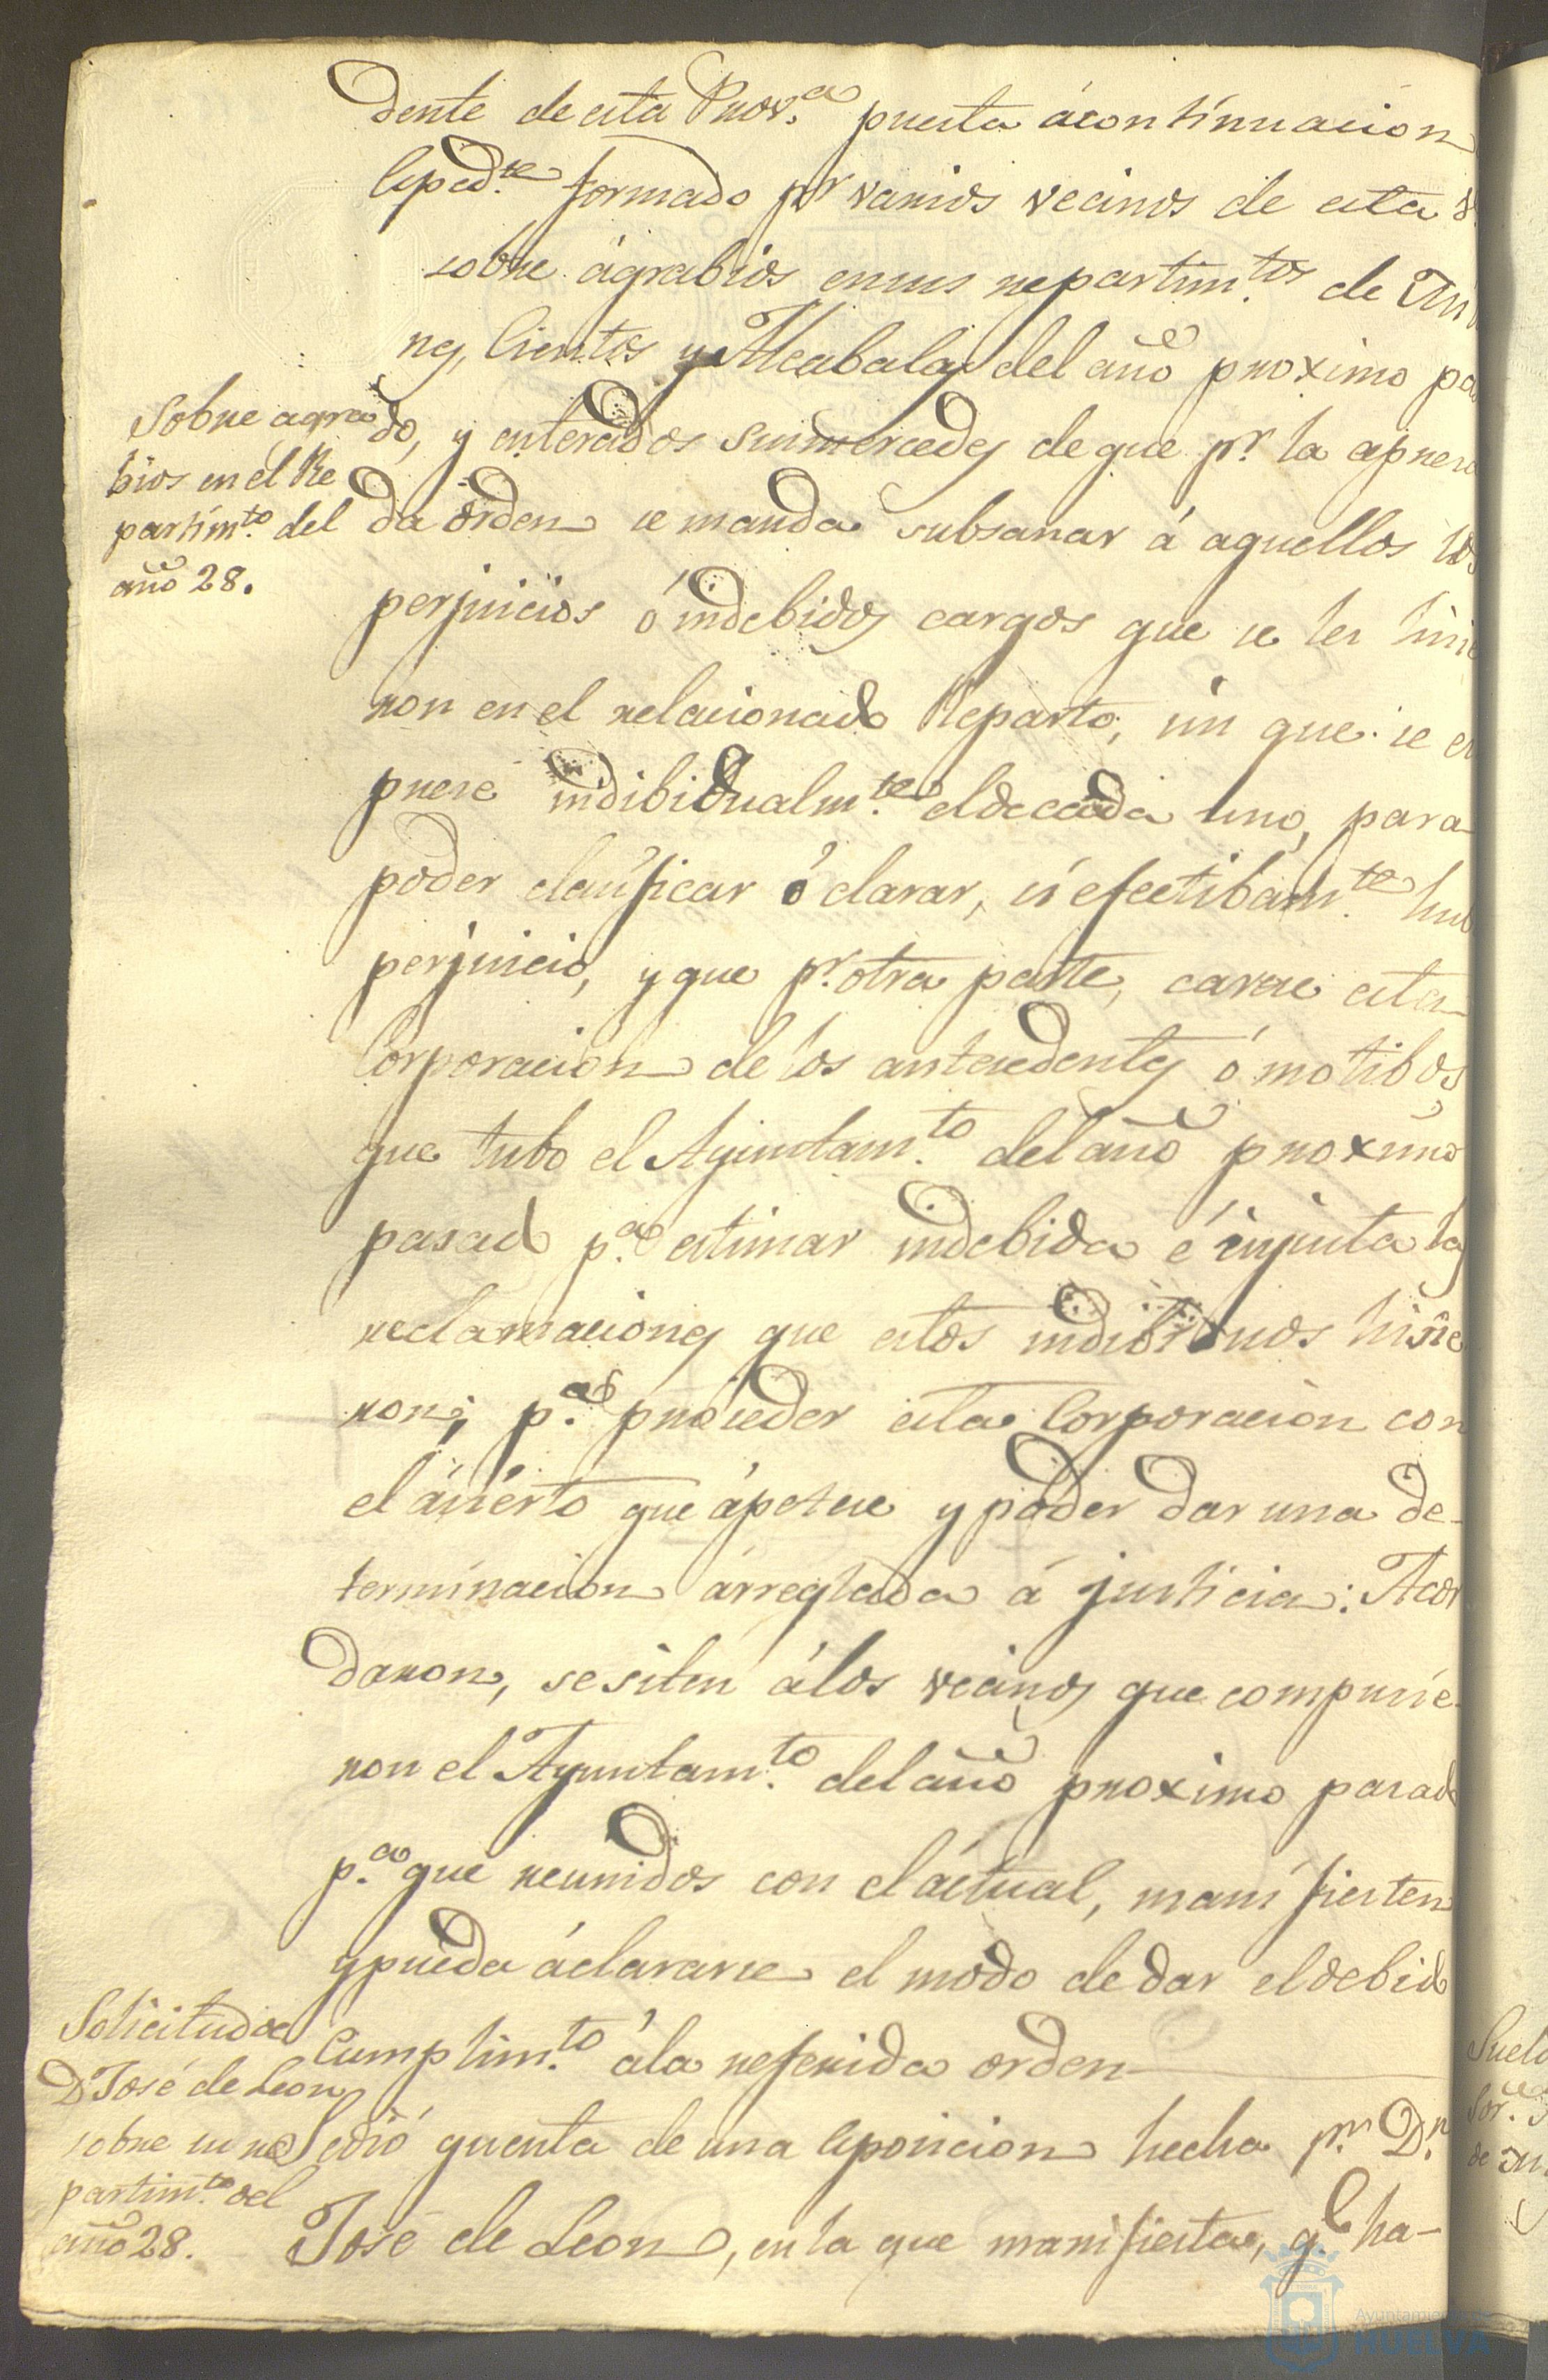 dente de esta Prov.ª puesta á continuacion
Esped.te formado p.r varios vecinos de esta V.
sobre ágrabios en sus repartim.tos de Uti
nes, Cientos y Alcabalas del año proximo pa
Sobre agra
bios en el Re
partim.to del
año 28.
do, y enterados Sus mercedes de que p.r la apresa
da órden se manda subsanar á aquellos los
perjuicios ó indebidos cargos que se les hicie
ron en el relacionado Reparto, sin que se es
prese indibidualm.te el de cada uno, para
poder clasificar ó clarar, si efectibam.te hub
perjuicio, y que p.r otra parte, carece esta
Corporacion de los antecedentes ó motibos
que tubo el Ayuntam.to del año proximo
pasado p.ª estimar indebida é injusta las
reclamaciones que estos indibiduos hicie
ron; p.ª proceder esta Corporacion con
el ácierto que ápetece y poder dar una de-
terminacion árreglada á justicia: Acor
daron, se siten á los vecinos que compusie-
ron el Ayuntam.to del año proximo pasado
p.ª que reunidos con el áctual, manifiesten
y pueda áclararse el modo de dar el debido
Cumplim.to á la referida orden
Solicitud de
D José de Leon
sobre su re
partim.to del
año 28.
Se dió quenta de una esposicion hecha p.r D.n
José de Leon, en la que manifiesta, q.e ha-
Ayuntamiento
HUELVA